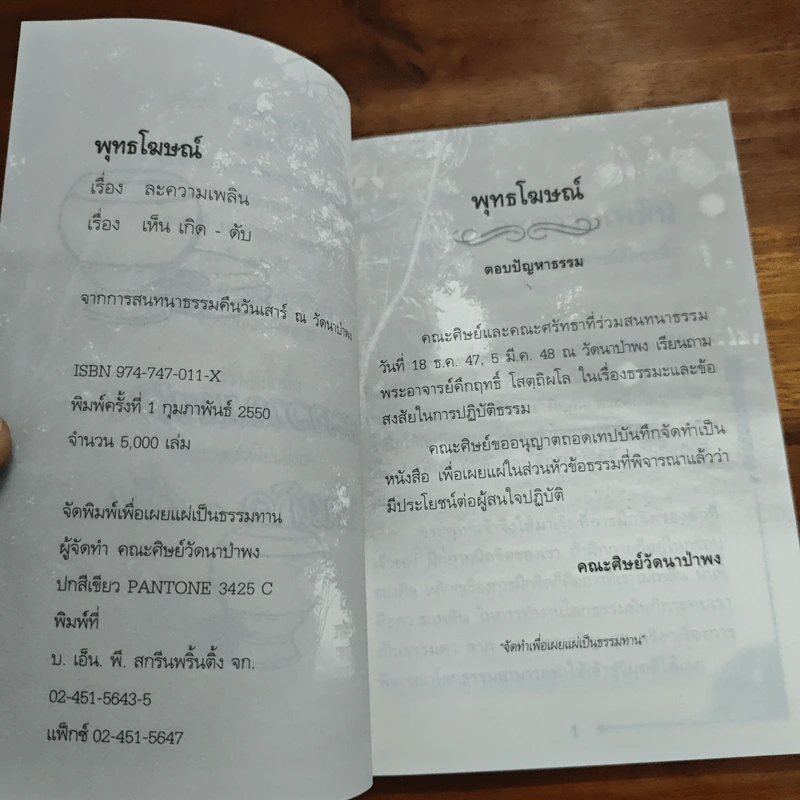 พุทธโฆษณ์
เรื่อง ละความเพลิน
เรื่อง เห็น เกิด - ดับ
จากการสนทนาธรรมคืนวันเสาร์ ณ วัดนาป่าพง
ISBN 974-747-011-X
พิมพ์ครั้งที่ 1 กุมภาพันธ์ 2550
จำนวน 5,000 เล่ม
จัดพิมพ์เพื่อเผยแผ่เป็นธรรมทาน
ผู้จัดทำ คณะศิษย์วัดนาป่าพง
ปกสีเขียว PANTONE 3425 C
พิมพ์ที่
บ. เอ็น. พี. สกรีนพริ้นติ้ง จก.
02-451-5643-5
แฟ็กซ์ 02-451-5647
พุทธโฆษณ์
ตอบปัญหาธรรม
คณะศิษย์และคณะศรัทธาที่ร่วมสนทนาธรรม
วันที่ 18 ธ.ค. 47, 5 มี.ค. 48 ณ วัดนาป่าพง เรียนถาม
พระอาจารย์คึกฤทธิ์ โสตฺถิผโล ในเรื่องธรรมะและข้อ
สงสัยในการปฏิบัติธรรม
คณะศิษย์ขออนุญาตถอดเทปบันทึกจัดทำเป็น
หนังสือ เพื่อเผยแผ่ในส่วนหัวข้อธรรมที่พิจารณาแล้วว่า
มีประโยชน์ต่อผู้สนใจปฏิบัติ
คณะศิษย์วัดนาป่าพง
"จัดทำเพื่อเผยแผ่เป็นธรรมทาน"
1